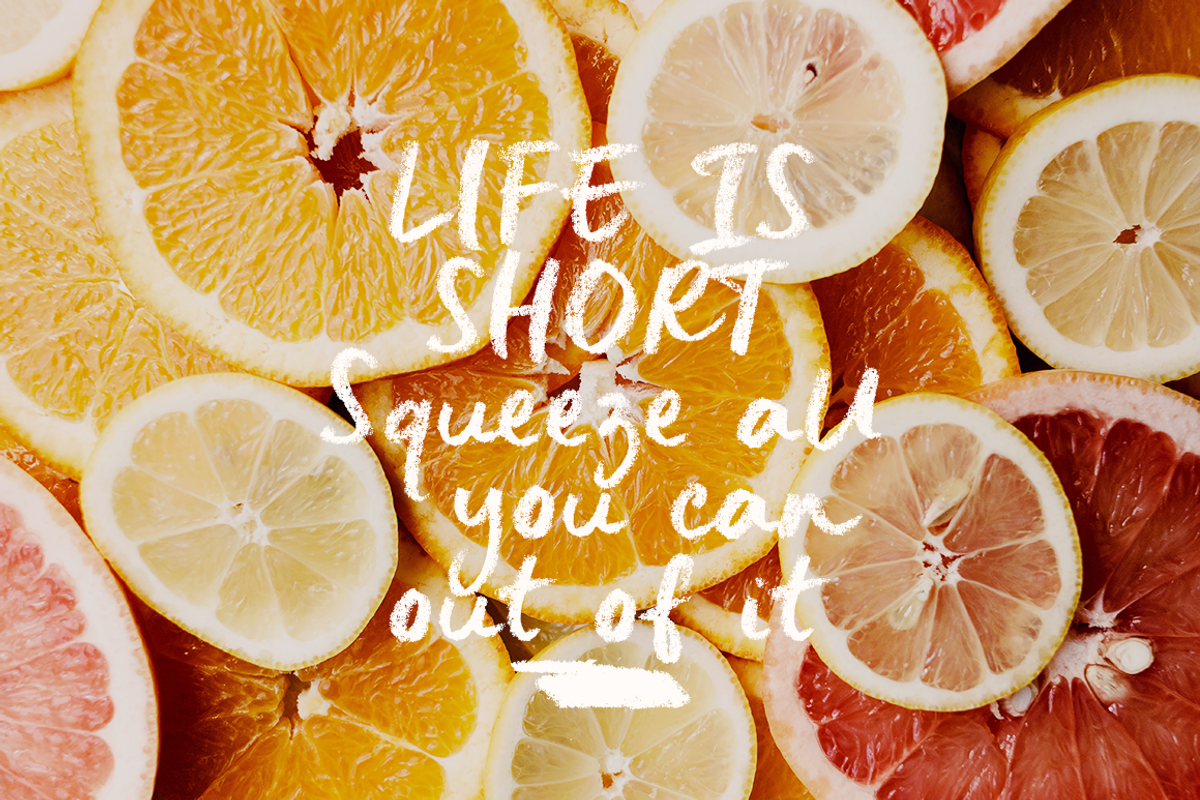 LIFE IS
SHORT
Squeeze all
you can
out of it